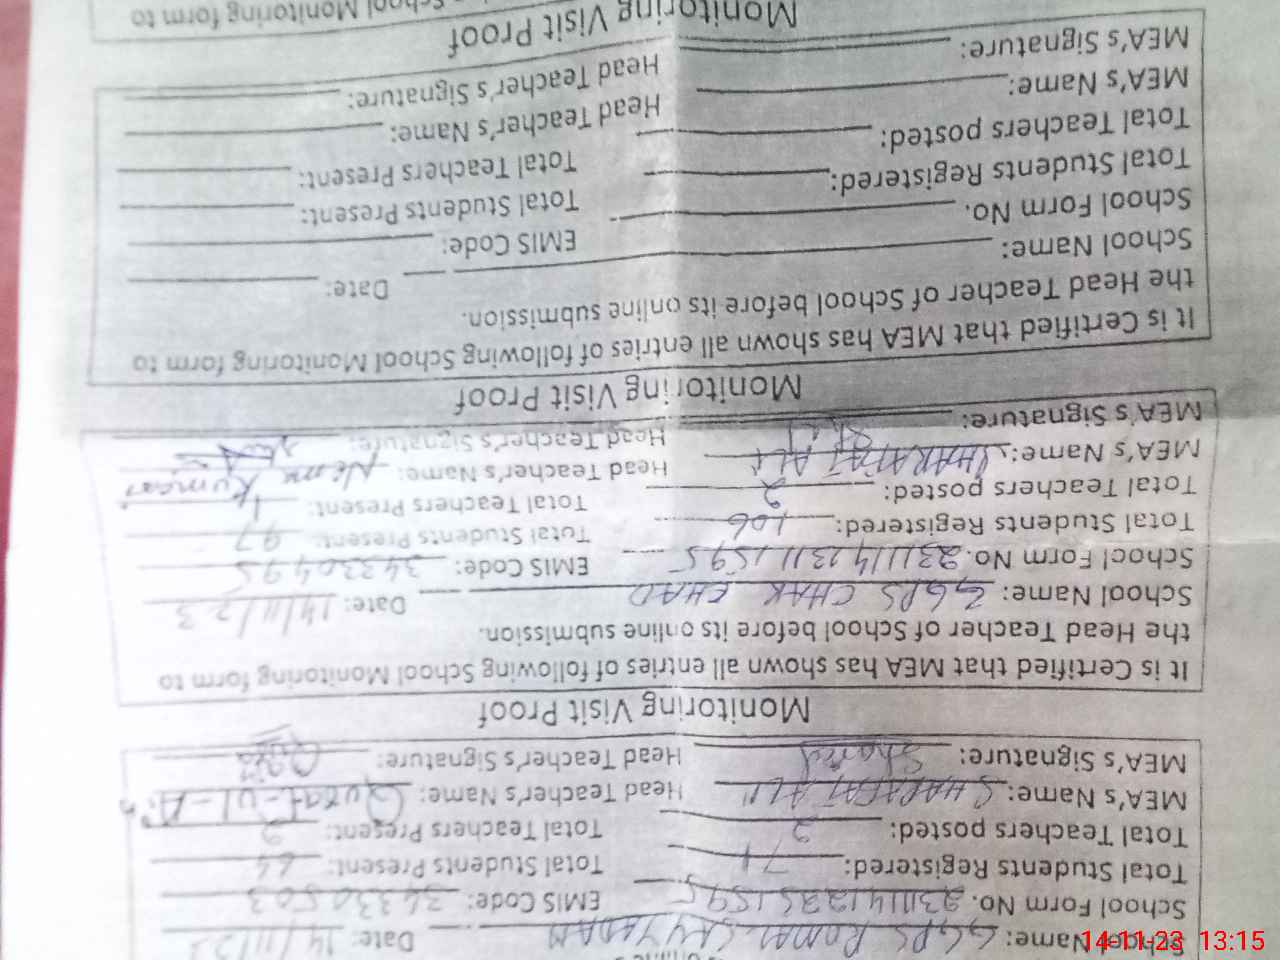 School Name: GGPS Date: 14/11/23
School Form No. 2311141225159 5 EMIS Code: 34330503
Total Students Registered: 71 Total Students Present: 64
Total Teachers posted: 2 Total Teachers Present: 2
MEA's Name: SHARAFAT ALI Head Teacher's Name: Qurat-ul-A
MEA's Signature: Head Teacher's Signature:
Monitoring Visit Proof
It is Certified that MEA has shown all entries of following School Monitoring form to
the Head Teacher of School before its online submission.
School Name: GGPS CHAK CHAD Date: 14/11/23
School Form No. 231114131159 5 EMIS Code: 34330495
Total Students Registered: 106 Total Students Present: 97
Total Teachers posted: 2 Total Teachers Present: 1
MEA's Name: SHARAFAT ALI Head Teacher's Name: Kumari
MEA's Signature: Head Teacher's Signature:
Monitoring Visit Proof
It is Certified that MEA has shown all entries of following School Monitoring form to
the Head Teacher of School before its online submission.
School Name: Date:
School Form No. EMIS Code:
Total Students Registered: Total Students Present:
Total Teachers posted: Total Teachers Present:
MEA's Name: Head Teacher's Name:
MEA's Signature: Head Teacher's Signature:
Monitoring Visit Proof
School Monitoring form to
14-11-23 13:15